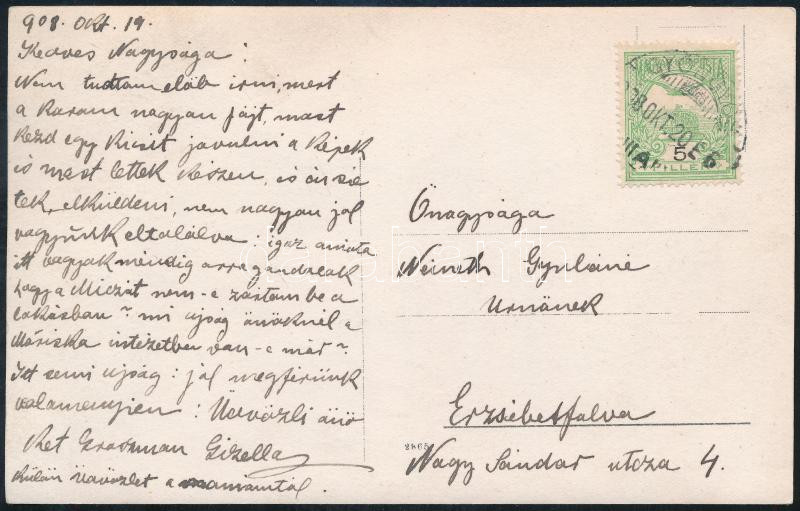 908. Okt. 19.
Kedves Nagysága!
Nem tudtam elöb irni, mert
a Karam nagyan fájt, mast
kezd egy kicsit javulni a képek
is mast lettek készen, is én sie
tek, elküldeni, nem nagyan jol
vagyunk eltalálva: igaz amiota
itt vagyok mindig arra gandalak
hagy a Miczát nem-e zártam be a
lakásban? mi ujság önöknél a
Máriska intézetben van-e már?
Itt semi ujság: jol megférünk
valamenyien: Üdvözli önö
ket Graszman Gizella
Külön Üdvözlet a mamámtól.
MAGY. KIR. POSTA
908 OKT. 20. E 6
5
FILLÉR
Önagysága
Németh Gyuláné
Urnönek
Erzsébetfalva
2865
Nagy Sándor utcza 4.